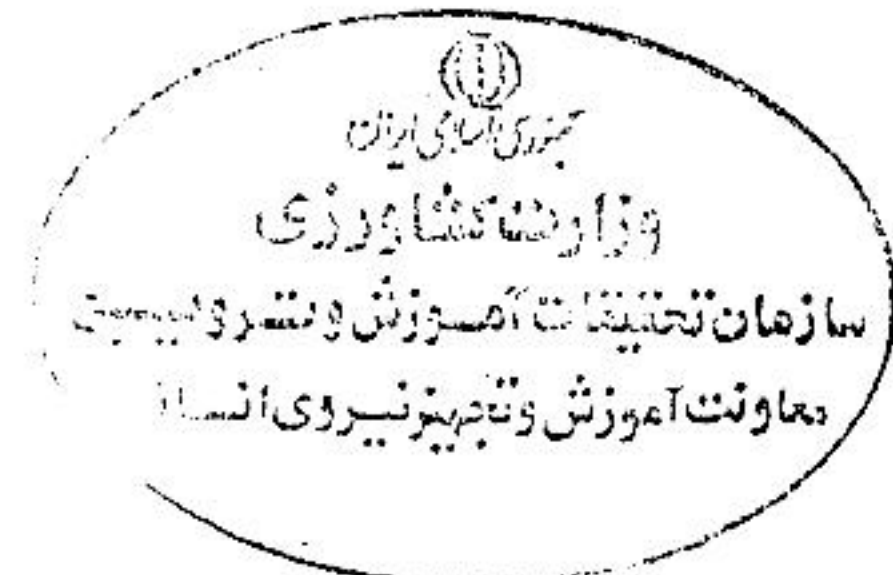 جمهوری اسلامی ایران
وزارت کشاورزی
سازمان تحقیقات آموزش و
معاونت آموزش و تجهیز نیروی